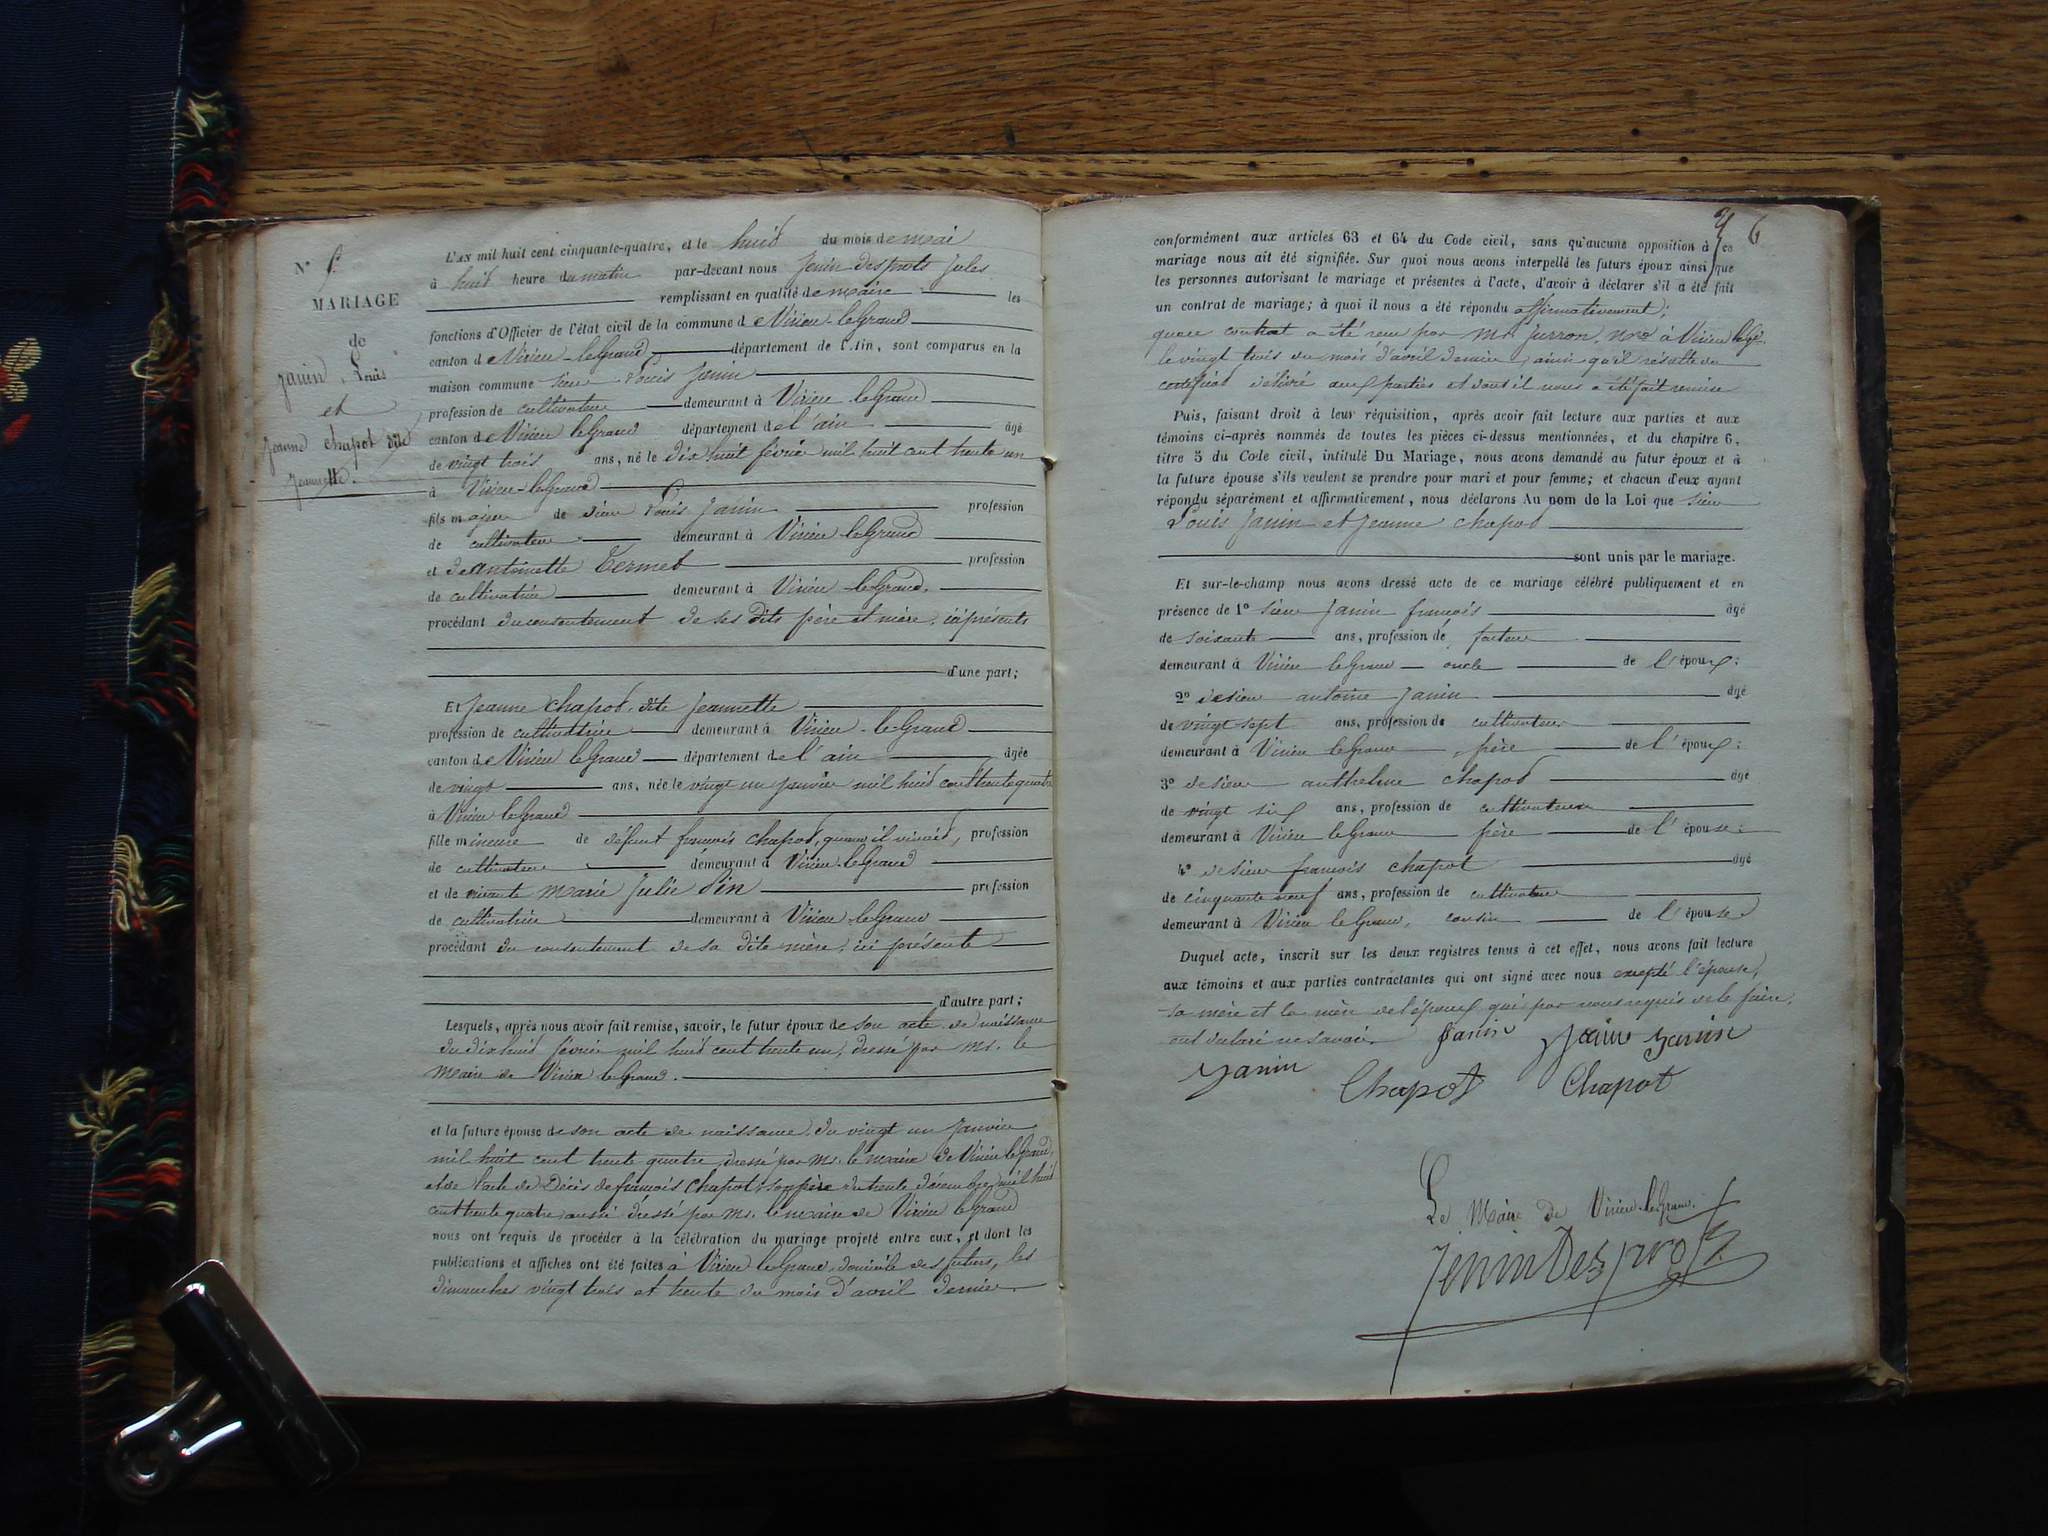 L'AN mil huit cent cinquante-quatre, et le huit du mois de mai
à huit heure du matin par-devant nous Jenin desprots Jules
remplissant en qualité de maire les
fonctions d'Officier de l'état civil de la commune de Virieu-le Grand
canton de Virieu-le Grand département de l'Ain, sont comparus en la
maison commune sieur Louis Janin
profession de cultivateur demeurant à Virieu le Grand
canton de Virieu le Grand département de l'ain âgé
de vingt trois ans, né le dix huit février mil huit cent trente un
à Virieu-le Grand
fils majeur de sieur Louis Janin profession
de cultivateur demeurant à Virieu le Grand
et de antoinette Termet profession
de cultivatrice demeurant à Virieu le Grand.
procédant du consentement de ses dits père et mère, ici présents
d'une part;
Et Jeanne chapot, dite Jeannette
profession de cultivatrice demeurant à Virieu-le Grand
canton de Virieu le Grand département de l'ain âgée
de vingt ans, née le vingt un janvier mil huit cent trente quatre
à Virieu le Grand
fille mineure de défunt francois chapot, quand il vivait, profession
de cultivateur demeurant à Virieu le Grand
et de vivante marie Julie Pin profession
de cultivatrice demeurant à Virieu le Grand
procédant du consentement de sa dite mère, ici présente
d'autre part;
Lesquels, après nous avoir fait remise, savoir, le futur époux de son acte de naissance
du dix huit février mil huit cent trente un, dressé par Mr. le
Maire de Virieu le Grand.
et la future épouse de son acte de naissance, du vingt un janvier
mil huit cent trente quatre dressé par Mr. le maire de Virieu le Grand,
et de l'acte de décès de francois Chapot, son père du trente décembre mil huit
cent trente quatre, aussi dressé par Mr. le maire de Virieu le Grand
nous ont requis de procéder à la célébration du mariage projeté entre eux, et dont les
publications et affiches ont été faites à Virieu le Grand, domicile des futurs, les
dimanches vingt trois et trente du mois d'avril dernier.
N°
MARIAGE
de
Janin, Louis
et
Jeanne chapot dite
Jeannette.
6
conformément aux articles 63 et 64 du Code civil, sans qu'aucune opposition à ce
mariage nous ait été signifiée. Sur quoi nous avons interpellé les futurs époux ainsi que
les personnes autorisant le mariage et présentes à l'acte, d'avoir à déclarer s'il a été fait
un contrat de mariage; à quoi il nous a été répondu affirmativement;
que ce contrat a été reçu par Me Jurron, nre à Virieu le Gd.
le vingt trois du mois d'avril dernier ainsi qu'il résulte du
certificat délivré aux parties et dont il nous a été fait remise
Puis, faisant droit à leur réquisition, après avoir fait lecture aux parties et aux
témoins ci-après nommés de toutes les pièces ci-dessus mentionnées, et du chapitre 6,
titre 5 du Code civil, intitulé Du Mariage, nous avons demandé au futur époux et à
la future épouse s'ils veulent se prendre pour mari et pour femme; et chacun d'eux ayant
répondu séparément et affirmativement, nous déclarons Au nom de la Loi que sieur
Louis Janin et Jeanne chapot
sont unis par le mariage.
Et sur-le-champ nous avons dressé acte de ce mariage célébré publiquement et en
présence de 1° sieur Janin françois âgé
de soixante ans, profession de facteur
demeurant à Virieu le Grand oncle de l'époux;
2° de sieur antoine Janin âgé
de vingt sept ans, profession de cultivateur
demeurant à Virieu le Grand frère de l'époux;
3° de sieur anthelme chapot âgé
de vingt six ans, profession de cultivateur
demeurant à Virieu le Grand frère de l'épouse;
4° de sieur francois chapot âgé
de cinquante neuf ans, profession de cultivateur
demeurant à Virieu le Grand, cousin de l'épouse
Duquel acte, inscrit sur les deux registres tenus à cet effet, nous avons fait lecture
aux témoins et aux parties contractantes qui ont signé avec nous excepté l'épouse,
sa mère et la mère de l'époux qui par nous requis de le faire,
ont déclaré ne savoir. Janin Janin
Janin Chapot Chapot
Le Maire de Virieu-le Grand.
Jenin Desprots